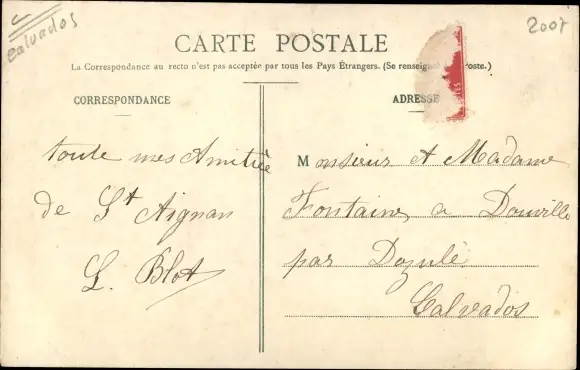 Calvados
2007
CARTE POSTALE
La Correspondance au recto n'est pas acceptée par tous les Pays Étrangers. (Se renseign oste.)
CORRESPONDANCE
ADRESSE
toute mes Amitiée
de St Aignan
L. Blot
Monsieur et Madame
Fontaine, a Douville
par Dozulé
Calvados